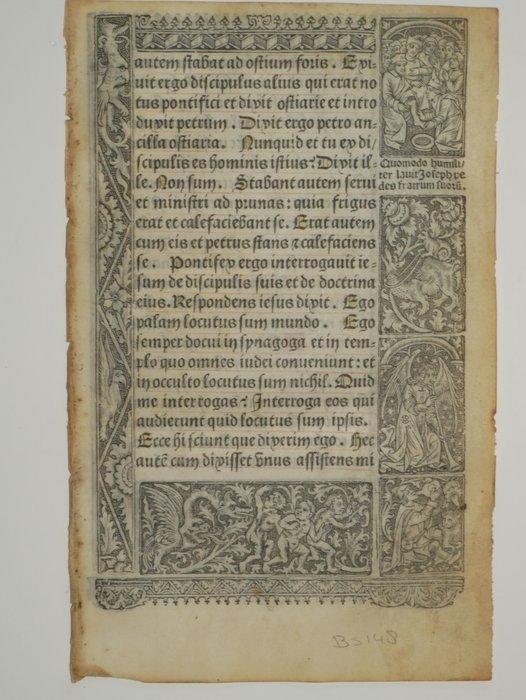 autem stabat ad ostium foris. Exi-
uit ergo discipulus alius qui erat no
tus pontifici et dixit ostiarie et intro
duxit petrum. Dixit ergo petro an-
cilla ostiaria. Nunquid et tu ex di-
scipulis es hominis istius? Dixit il-
le. Non sum. Stabant autem serui
et ministri ad prunas: quia frigus
erat et calefaciebant se. Erat autem
cum eis et petrus stans ⁊ calefaciens
se. Pontifex ergo interrogauit ie-
sum de discipulis suis et de doctrina
eius. Respondens iesus dixit. Ego
palam locutus sum mundo. Ego
semper docui in synagoga et in tem-
plo quo omnes iudei conueniunt: et
in occulto locutus sum nichil. Quid
me interrogas? Interroga eos qui
audierunt quid locutus sum ipsis.
Ecce hi sciunt que dixerim ego. Hec
autē cum dixisset vnus assistens mi
Quomodo humili-
ter lauit Joseph pe
des fratrum suorū.
BS148